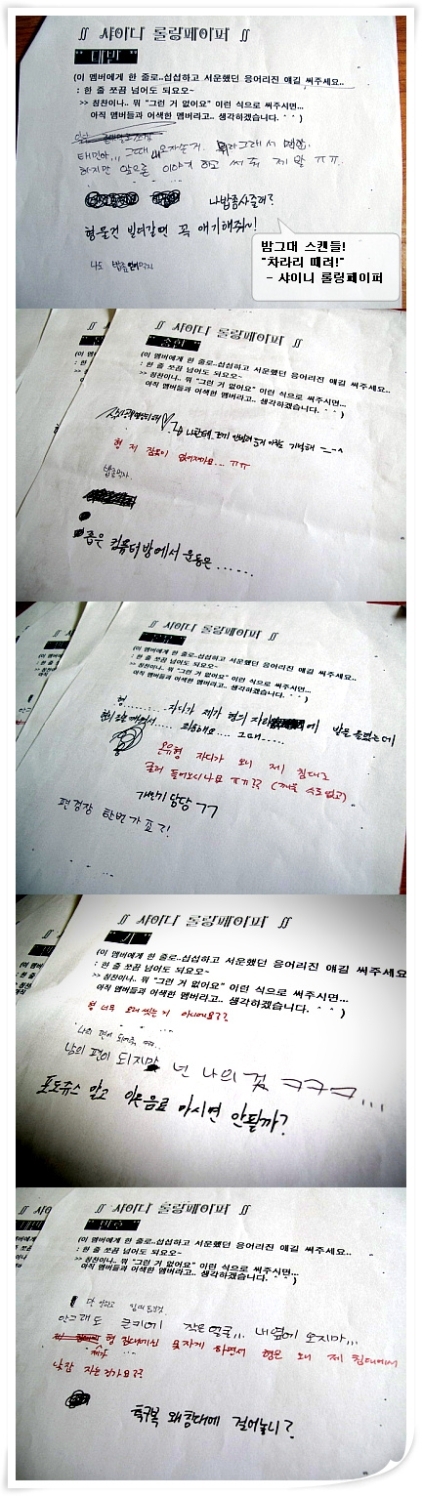 ∬ 샤이니 롤링페이퍼 ∬
" 태민 "
(이 멤버에게 한 줄로..섭섭하고 서운했던 응어리진 얘길 써주세요..
: 한 줄 쪼끔 넘어도 되요오~
>> 칭찬이나.. 뭐 "그런 거 없어요" 이런 식으로 써주시면...
아직 멤버들과 어색한 멤버라고.. 생각하겠습니다. ` ` )
태민아...
하지만 앞으론 이야기 하고 써 줘 제발 ㅠㅠ.
나밥좀사줄래?
형물건 빌려갈땐 꼭 얘기해줘~!
밤그대 스캔들!
"차라리 때려!"
- 샤이니 롤링페이퍼
∬ 샤이니 롤링페이퍼 ∬
(이 멤버에게 한 줄로..섭섭하고 서운했던 응어리진 얘길 써주세요..
: 한 줄 쪼끔 넘어도 되요오~
>> 칭찬이나.. 뭐 "그런 거 없어요" 이런 식으로 써주시면...
아직 멤버들과 어색한 멤버라고.. 생각하겠습니다. ` ` )
형 저 잠옷이 없어져가요... ㅠㅠ
밥좀먹자.
좁은 컴퓨터방에서 운동은......
∬ 샤이니 롤링페이퍼 ∬
(이 멤버에게 한 줄로..섭섭하고 서운했던 응어리진 얘길 써주세요..
: 한 줄 쪼끔 넘어도 되요오~
>> 칭찬이나.. 뭐 "그런 거 없어요" 이런 식으로 써주시면...
아직 멤버들과 어색한 멤버라고.. 생각하겠습니다. ` ` )
형......... 자다가 제가 형의 자리에 발을 올렸는데
온유형 자다가 왜 제 침대로
굴러 들어오시나요 ㅠㅠ?? (깨울 수도 없고)
개인기 담당 ㄱㄱ
표정!
∬ 샤이니 롤링페이퍼 ∬
" 키 "
(이 멤버에게 한 줄로..섭섭하고 서운했던 응어리진 얘길 써주세요..
: 한 줄 쪼끔 넘어도 되요오~
>> 칭찬이나.. 뭐 "그런 거 없어요" 이런 식으로 써주시면...
아직 멤버들과 어색한 멤버라고.. 생각하겠습니다. ` ` )
형 너무 오래 씻는거 아니에요??
나의 편이 되어줘
남의 편이 되지마 넌 나의 것 ㅋㅋㅋ...
포도쥬스 말고 이온음료 마시면 안될까?
∬ 샤이니 롤링페이퍼 ∬
(이 멤버에게 한 줄로..섭섭하고 서운했던 응어리진 얘길 써주세요..
: 한 줄 쪼끔 넘어도 되요오~
>> 칭찬이나.. 뭐 "그런 거 없어요" 이런 식으로 써주시면...
아직 멤버들과 어색한 멤버라고.. 생각하겠습니다. ` ` )
안그래도 큰키에 작은 얼굴... 내옆에 오지마...
형 침대에선 못자게 하면서 형은 왜 제 침대에서
낮잠 자는건가요??
축구복 왜 행거에 걸어놓니?